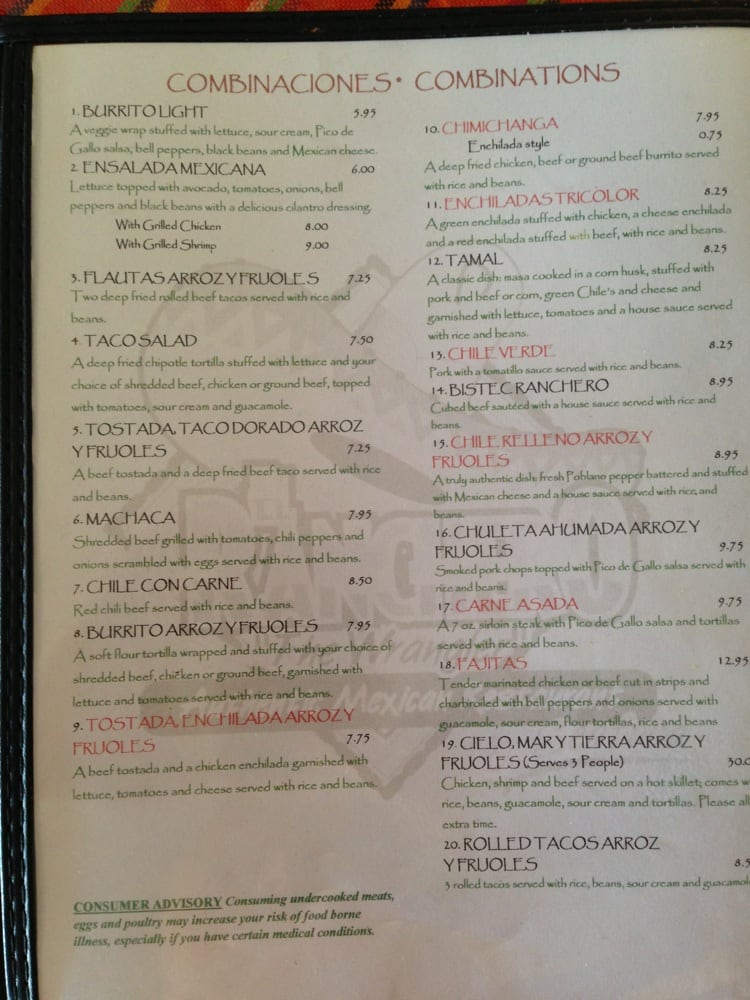 COMBINACIONES * COMBINATIONS
1. BURRITO LIGHT 5.95
A veggie wrap stuffed with lettuce, sour cream, Pico de
Gallo salsa, bell peppers, black beans and Mexican cheese.
2. ENSALADA MEXICANA 6.00
Lettuce topped with avocado, tomatoes, onions, bell
peppers and black beans with a delicious cilantro dressing.
With Grilled Chicken 8.00
With Grilled Shrimp 9.00
3. FLAUTAS ARROZ Y FRIJOLES 7.25
Two deep fried rolled beef tacos served with rice and
beans.
4. TACO SALAD 7.50
A deep fried chipotle tortilla stuffed with lettuce and your
choice of shredded beef, chicken or ground beef, topped
with tomatoes, sour cream and guacamole.
5. TOSTADA, TACO DORADO ARROZ
Y FRIJOLES 7.25
A beef tostada and a deep fried beef taco served with rice
and beans.
6. MACHACA 7.95
Shredded beef grilled with tomatoes, chili peppers and
onions scrambled with eggs served with rice and beans.
7. CHILE CON CARNE 8.50
Red chili beef served with rice and beans.
8. BURRITO ARROZ Y FRIJOLES 7.95
A soft flour tortilla wrapped and stuffed with your choice of
shredded beef, chicken or ground beef, garnished with
lettuce and tomatoes served with rice and beans.
9. TOSTADA, ENCHILADA ARROZ Y
FRIJOLES 7.75
A beef tostada and a chicken enchilada garnished with
lettuce, tomatoes and cheese served with rice and beans.
CONSUMER ADVISORY Consuming undercooked meats,
eggs and poultry may increase your risk of food borne
illness, especially if you have certain medical conditions.
10. CHIMICHANGA 7.95
Enchilada style 0.75
A deep fried chicken, beef or ground beef burrito served
with rice and beans.
11. ENCHILADAS TRICOLOR 8.25
A green enchilada stuffed with chicken, a cheese enchilada
and a red enchilada stuffed with beef, with rice and beans.
12. TAMAL 8.25
A classic dish: masa cooked in a corn husk, stuffed with
pork and beef or corn, green Chile's and cheese and
garnished with lettuce, tomatoes and a house sauce served
with rice and beans.
13. CHILE VERDE 8.25
Pork with a tomatillo sauce served with rice and beans.
14. BISTEC RANCHERO 8.95
Cubed beef sautéed with a house sauce served with rice and
beans.
15. CHILE RELLENO ARROZ Y
FRIJOLES 8.95
A truly authentic dish: fresh Poblano pepper battered and stuffed
with Mexican cheese and a house sauce served with rice, and
beans.
16. CHULETA AHUMADA ARROZ Y
FRIJOLES 9.75
Smoked pork chops topped with Pico de Gallo salsa served with
rice and beans.
17. CARNE ASADA 9.75
A 7 oz. sirloin steak with Pico de Gallo salsa and tortillas
served with rice and beans.
18. FAJITAS 12.95
Tender marinated chicken or beef cut in strips and
charbroiled with bell peppers and onions served with
guacamole, sour cream, flour tortillas, rice and beans
19. CIELO, MAR Y TIERRA ARROZ Y
FRIJOLES (Serves 3 People) 30.0
Chicken, shrimp and beef served on a hot skillet; comes w
rice, beans, guacamole, sour cream and tortillas. Please all
extra time.
20. ROLLED TACOS ARROZ
Y FRIJOLES 8.5
3 rolled tacos served with rice, beans, sour cream and guacamol